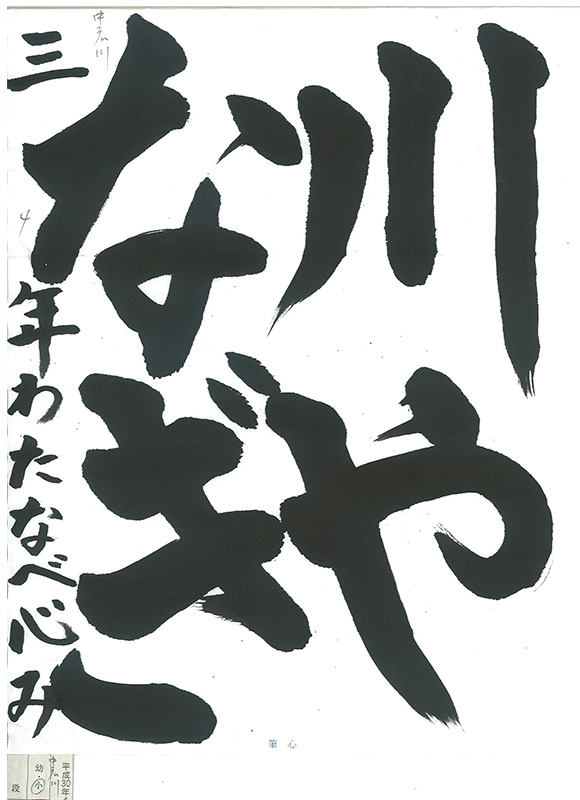 川や
なぎ
三年わたなべ心み
中広川
4
心筆
平成30年4
中広川
幼・小
段